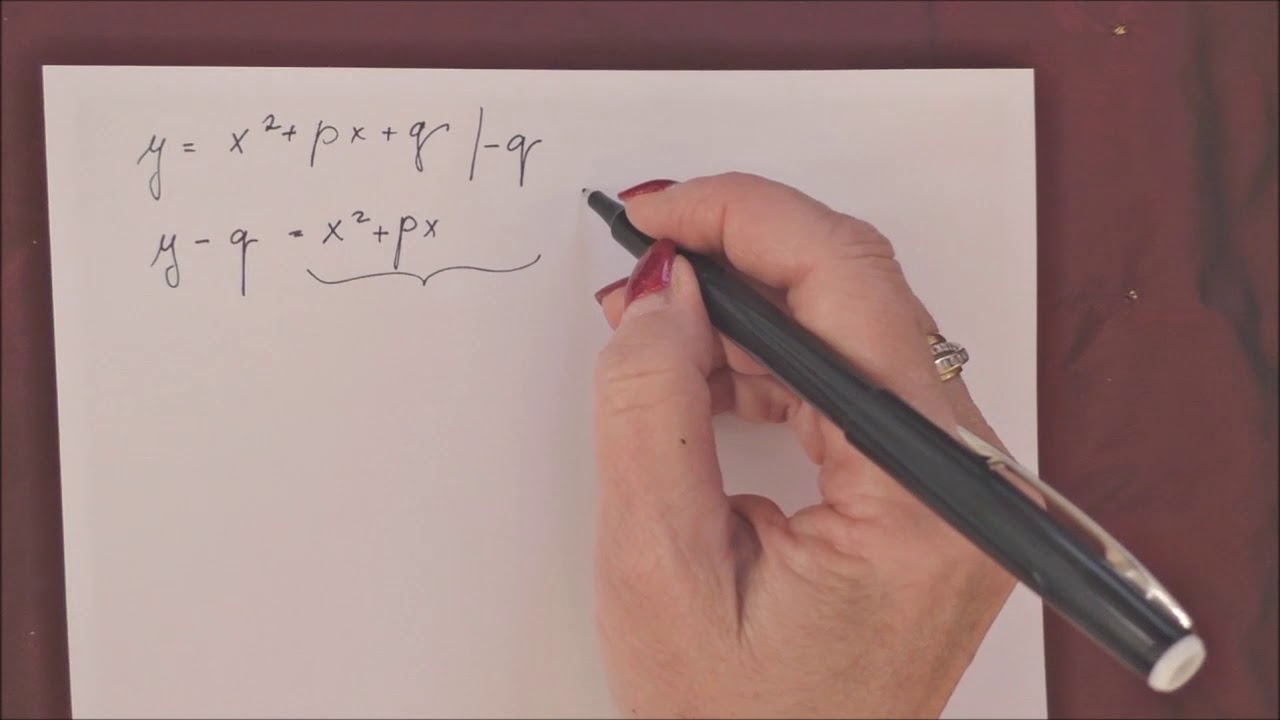 y = x² + px + q |-q
y - q = x² + px